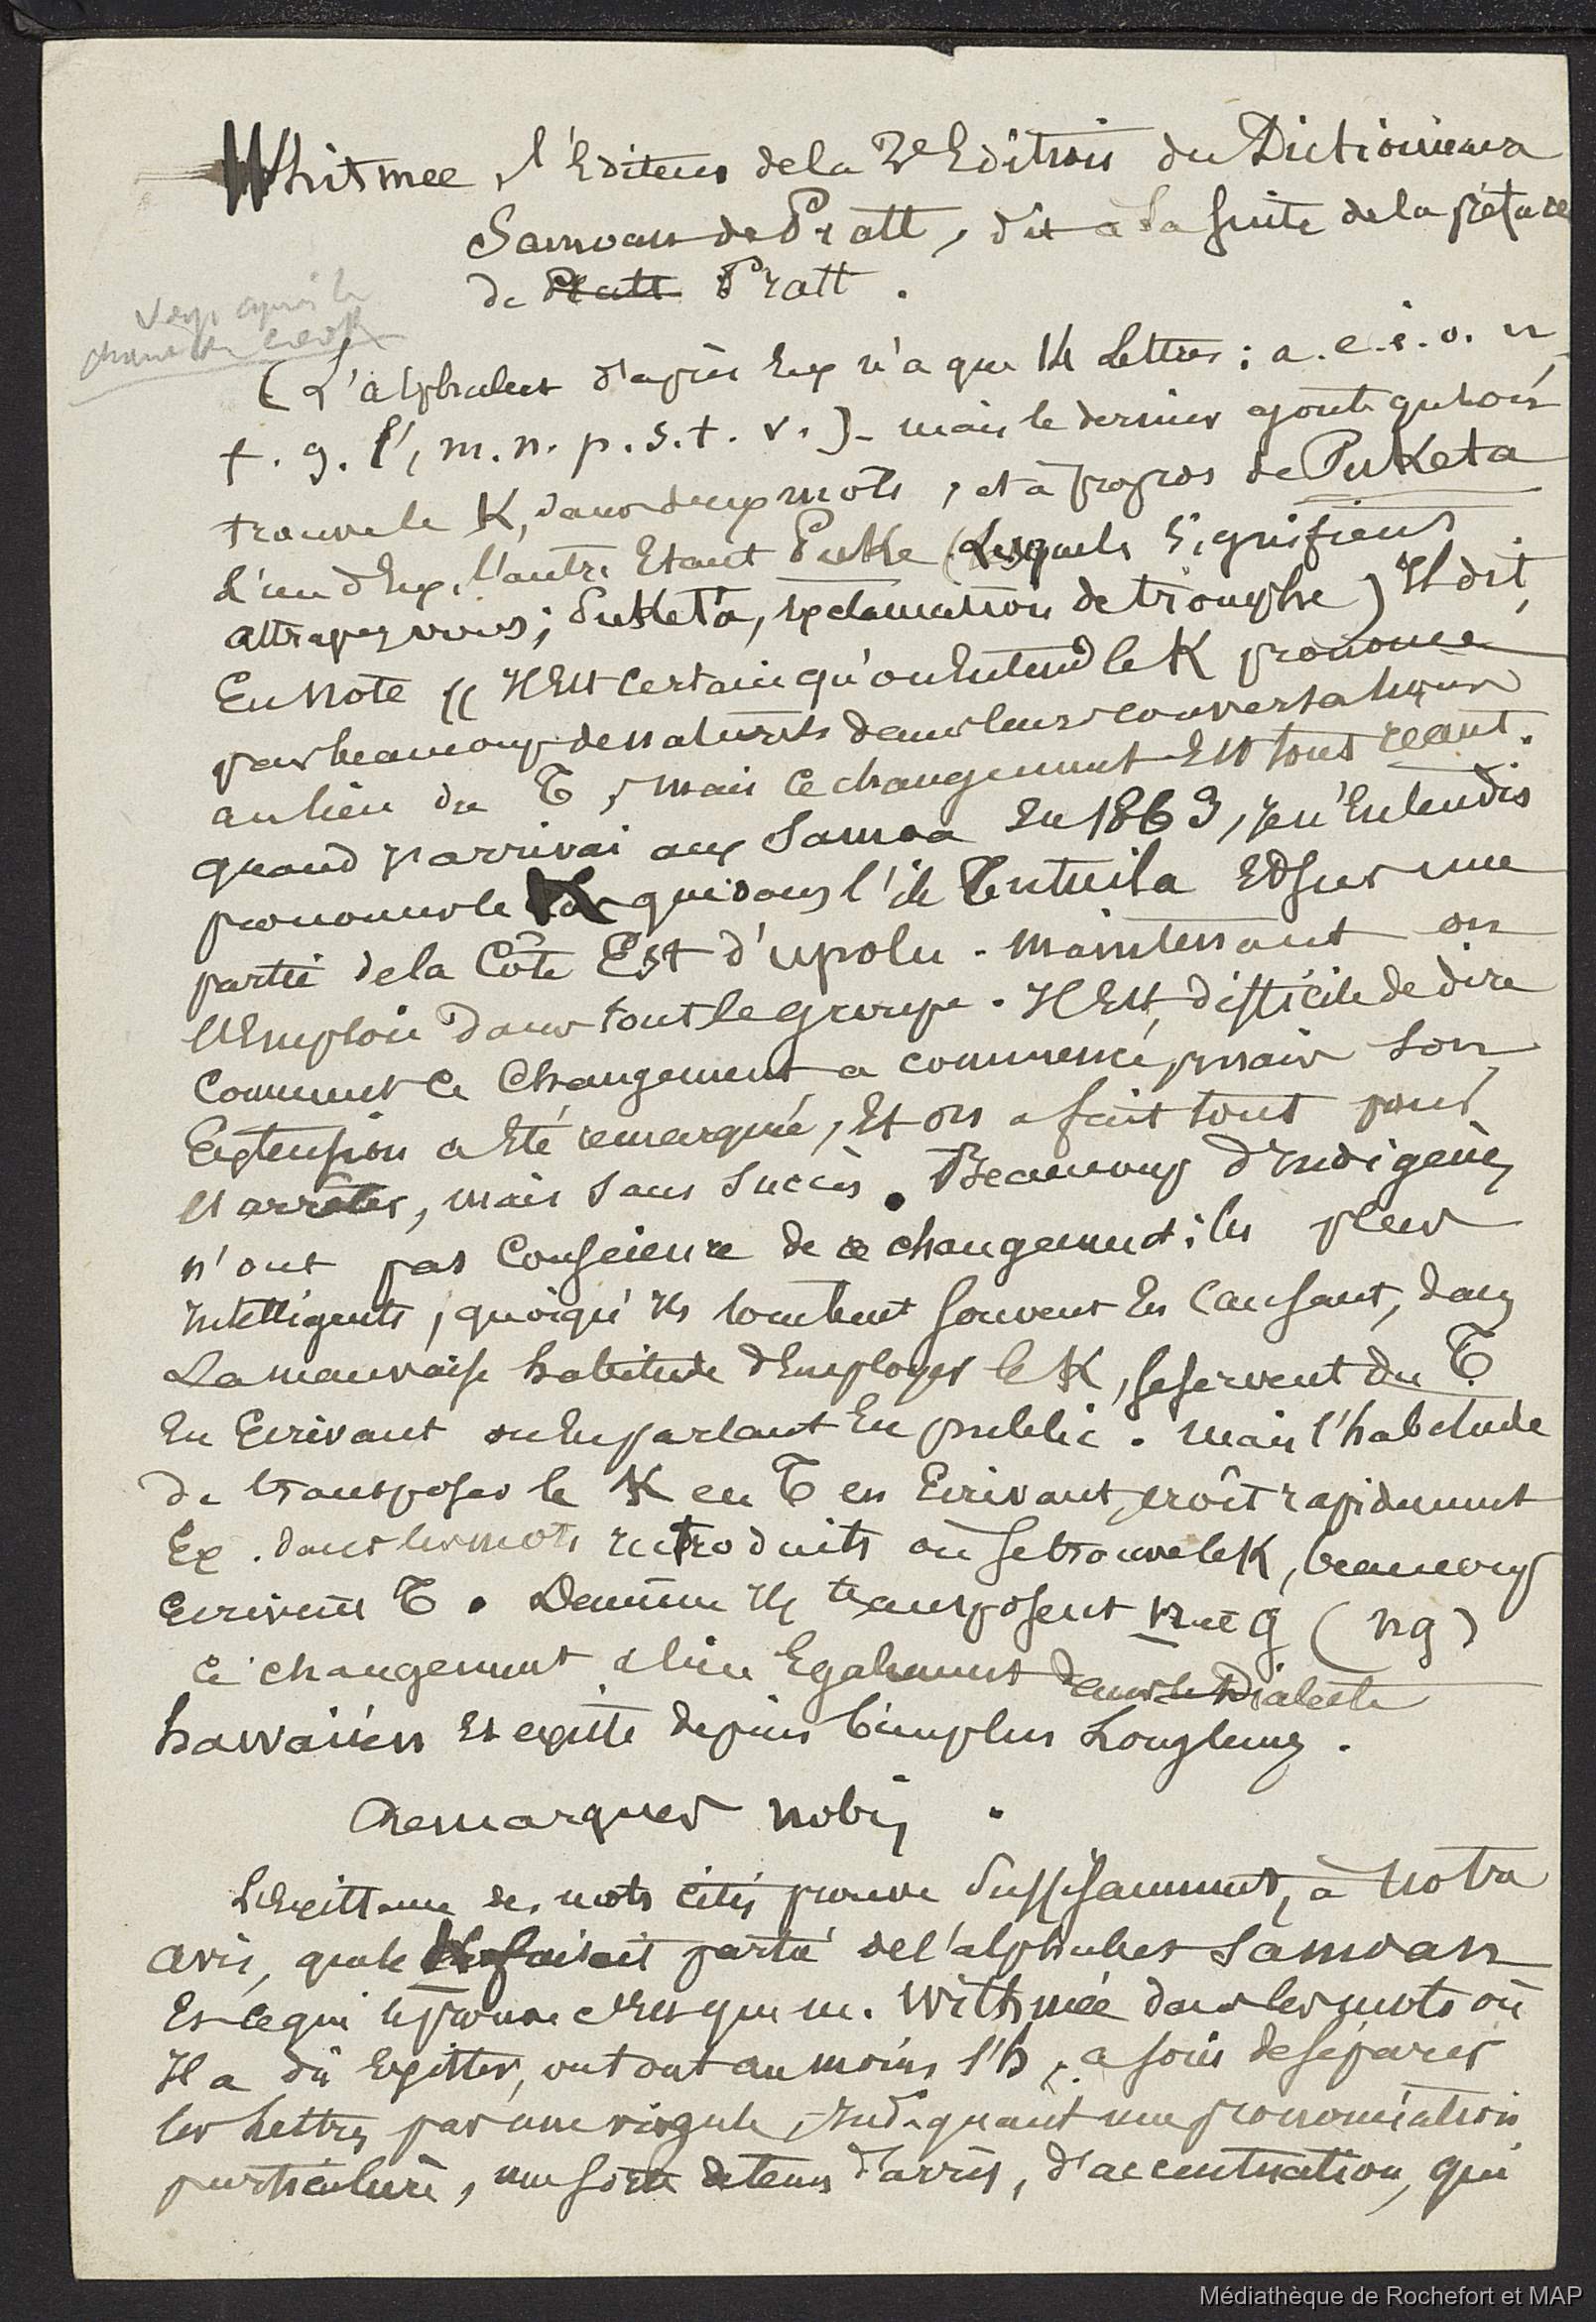 Whitmee, l'Editeur de la 2e Edition du Dictionnaire
Samoan de Pratt, dit à la suite de la préface
de Pratt Pratt.
(L'alphabet d'après Eux n'a que 14 lettres : a. e. i. o. u
f. g. l, m. n. p. s. t. v.) - mais le dernier ajoute qu'on
trouve le K, dans deux mots, et à propos de PuKeta
l'un d'Eux, l'autre Etant PuKe (lesquels signifient
attrapez vous ; PuKeta, exclamation de triomphe) Il dit,
En Note « Il Est certain qu'on Entend le K prononcé
par beaucoup de naturels dans leurs conversations
au lieu du T, mais ce changement Est tout récent.
quand j'arrivai aux Samoa En 1863, je n'Entendis
prononcer le K que dans l'île Tutuila Et sur une
partie de la Côte Est d'Upolu - maintenant on
l'Emploie dans tout le groupe. Il Est difficile de dire
Comment ce Changement a commencé, mais son
Extension a Eté remarquée, Et on a fait tout pour
l'arrêter, mais sans succès. Beaucoup d'Indigènes
n'ont pas Conscience de ce changement ; les plus
Intelligents, quoiqu'Ils tombent souvent En Causant, dans
La mauvaise habitude d'Employer le K, se servent du T
En Ecrivant ou En parlant En public. Mais l'habitude
de transposer le K en T en Ecrivant, croît rapidement
Ex. dans les mots introduits où se trouve le K, beaucoup
Ecrivent T. De même Ils transposent n et g (ng)
Ce changement a lieu Egalement dans le Dialecte
hawaiien Et existe depuis bien plus Longtemps.
Remarques nobis.
L'Existence des mots cités prouve suffisamment, à Notre
avis, que le K faisait partie de l'alphabet Samoan
Et ce qui le prouve c'Est que M. Withmée dans les mots où
Il a dû Exister, ou tout au moins l'h, a soin de séparer
les Lettres par une virgule, Indiquant une prononciation
particulière, une sorte de temps d'arrêt, d'accentuation, qui
Médiathèque de Rochefort et MAP